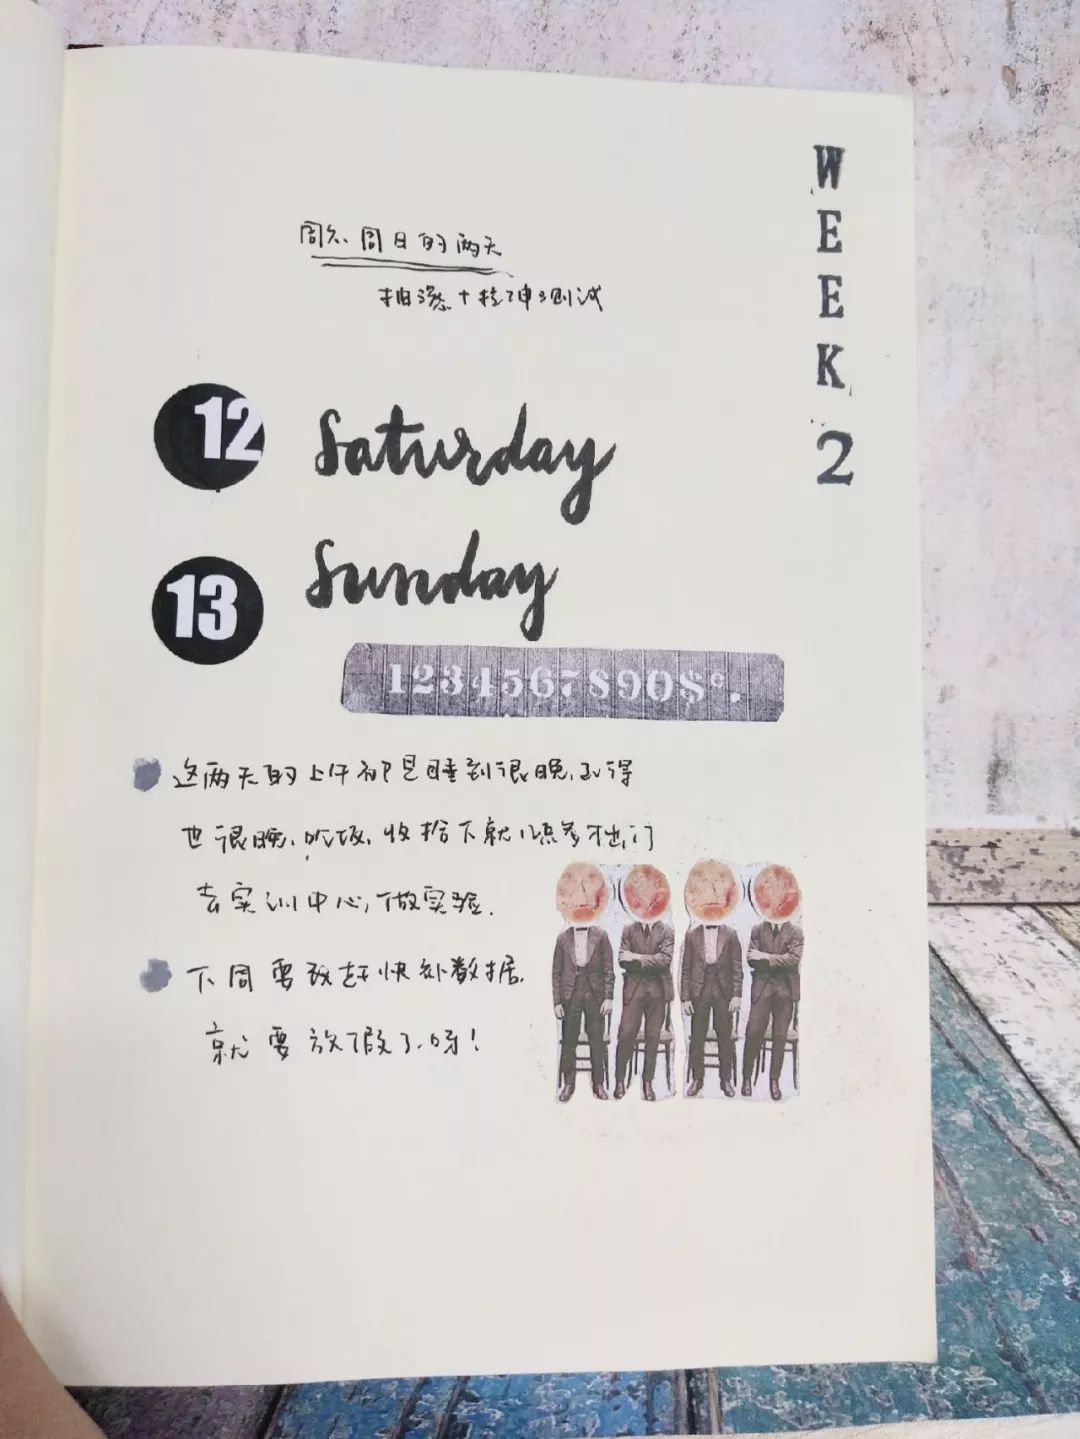 周六、周日的两天
抽滤+拉伸测试
WEEK 2
12 Saturday
13 Sunday
1234567890$¢.
这两天的上午都是睡到很晚、吃得
也很晚、吃饭、收拾下就1点多才出门
去实训中心,做实验.
下周要改赶快处数据.
就要放假了.呀!